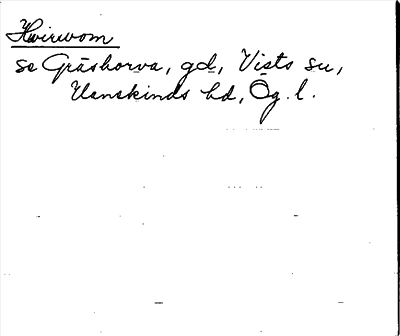 Hwirwom
se Gräshorva, gd, Vists sn,
Hanekinds hd, Ög. l.